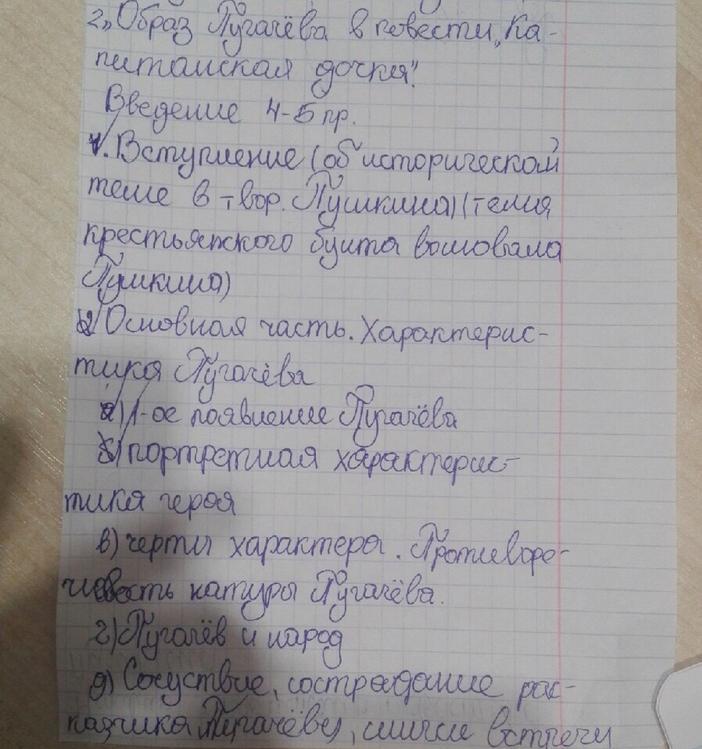 2. „Образ Пугачёва в повести „Ка-
питанская дочка".
Введение 4-5 пр.
1. Вступление (об исторической
теме в твор. Пушкина) (тема
крестьянского бунта волновала
Пушкина)
2) Основная часть. Характерис-
тика Пугачёва
а) 1-ое появление Пугачёва
б) портретная характерис-
тика героя
в) черты характера. Противоре-
чивость натуры Пугачёва.
г) Пугачёв и народ
д) Сочуствие, сострадание рас-
казчика Пугачёву, встречи